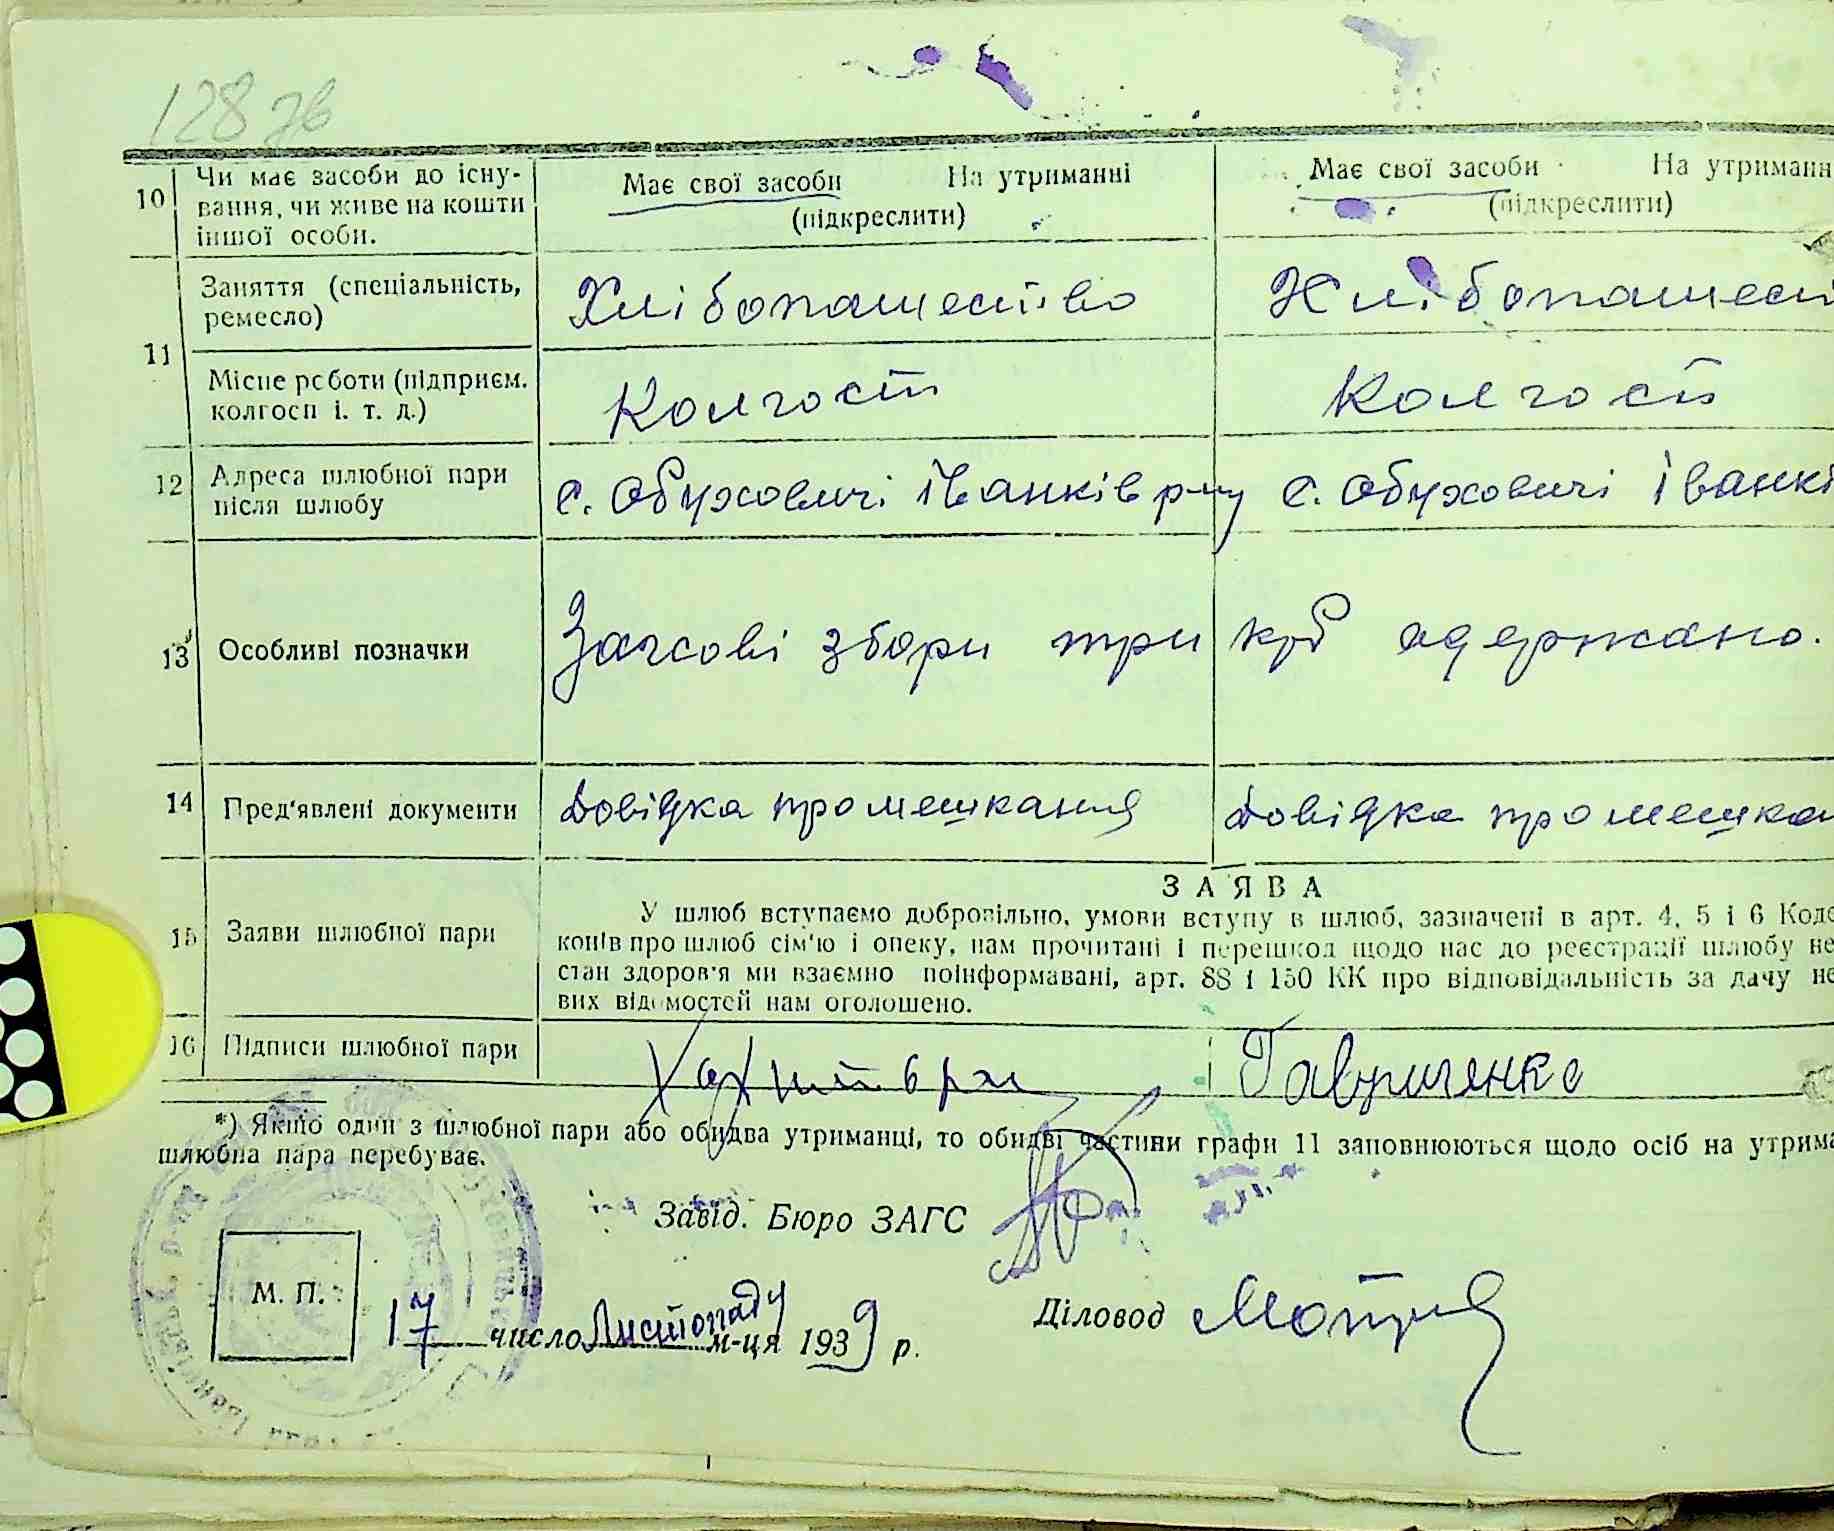 128 зв
10 Чи має засоби до існу-
вання, чи живе на кошти
іншої особи.
Має свої засоби На утриманні
(підкреслити)
Має свої засоби На утриманн
(підкреслити)
11 Заняття (спеціальність,
ремесло)
Хлібопашество
Хлібопашест
Місце роботи (підприєм.
колгосп і. т. д.)
Колгосп
Колгосп
12 Адреса шлюбної пари
після шлюбу
с. Обуховичі Іванків р-ну
с. Обуховичі Іванкі
13 Особливі позначки
Загсові збори три крб одержано.
14 Пред'явлені документи
Довідка промешкання
Довідка промешкан
15 Заяви шлюбної пари
ЗАЯВА
У шлюб вступаємо добровільно, умови вступу в шлюб, зазначені в арт. 4, 5 і 6 Коде
конів про шлюб сім'ю і опеку, нам прочитані і перешкод щодо нас до реєстрації шлюбу не
стан здоров'я ми взаємно поінформавані, арт. 88 і 150 КК про відповідальність за дачу не
вих відомостей нам оголошено.
16 Підписи шлюбної пари
Гавриленко
*) Якщо один з шлюбної пари або обидва утриманці, то обидві частини графи 11 заповнюються щодо осіб на утрима
шлюбна пара перебуває.
Завід. Бюро ЗАГС
М. П.
17 число Листопаду м-ця 1939 р.
Діловод